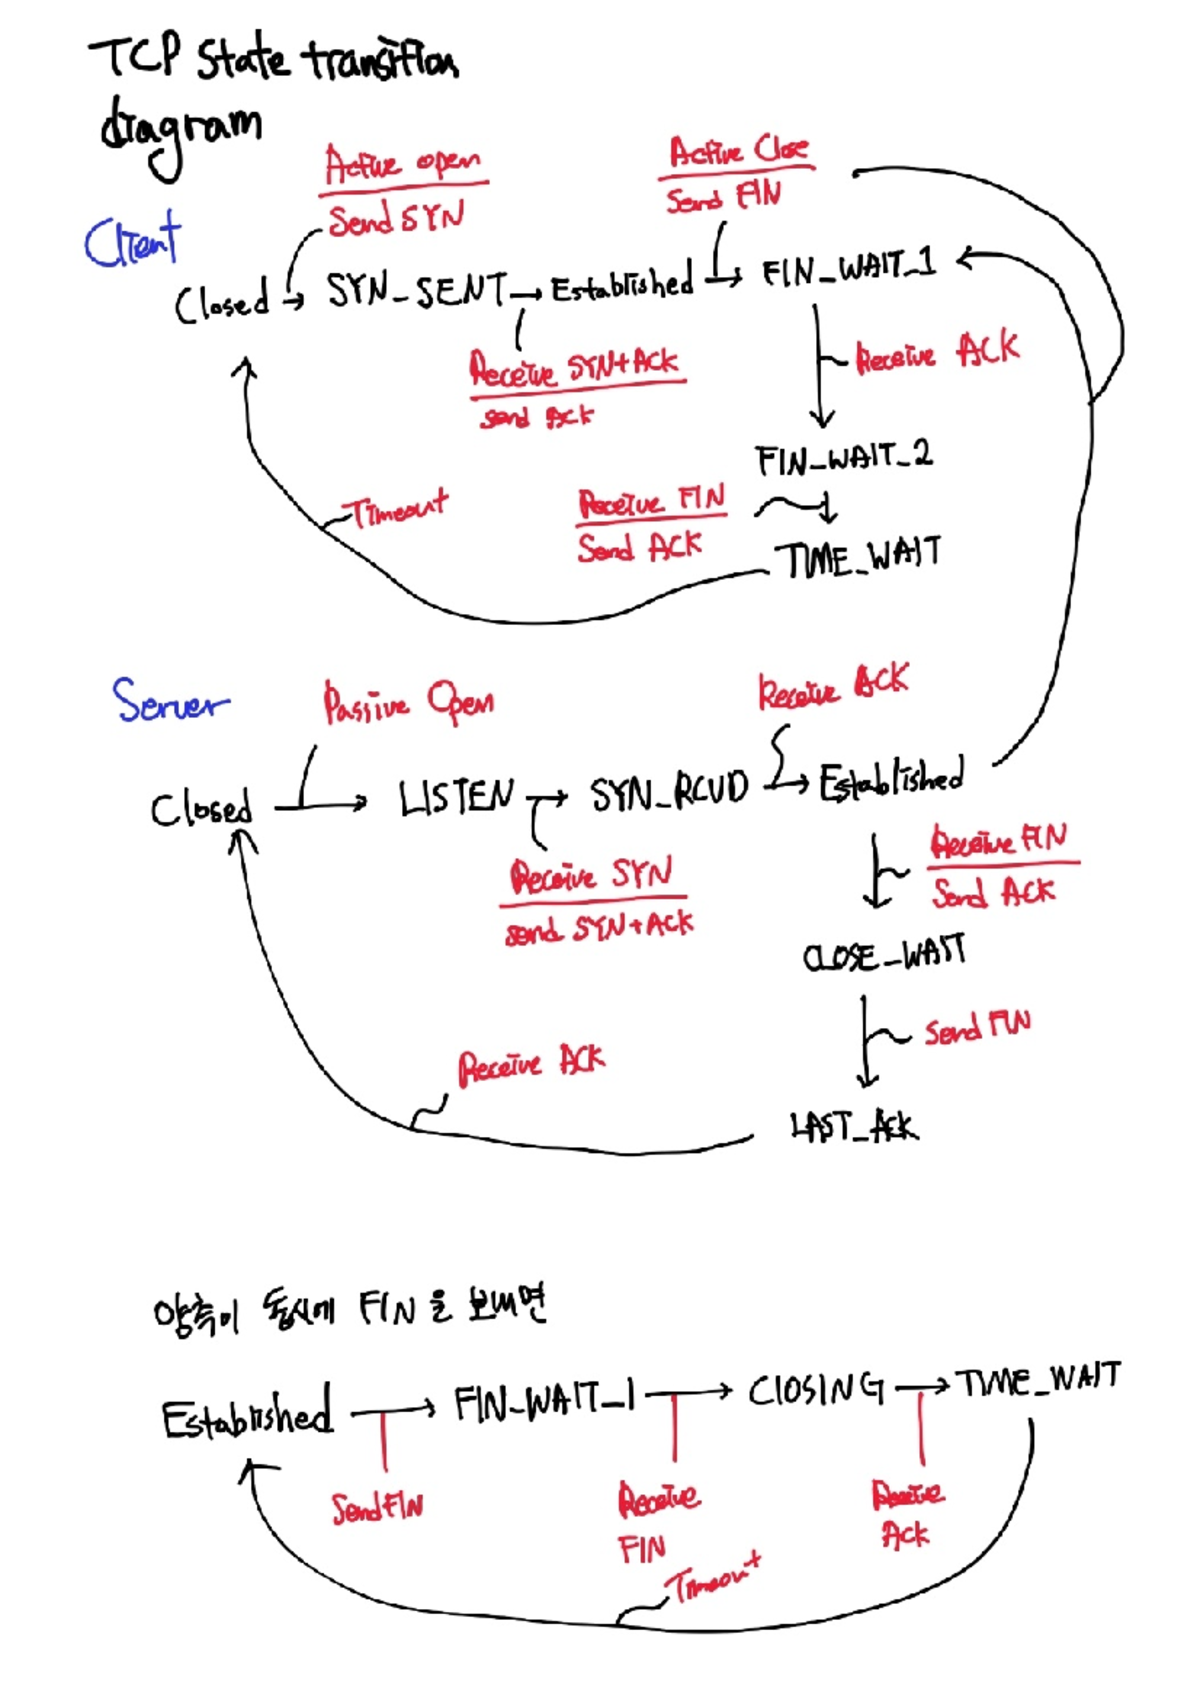 TCP State transition
diagram
Active open
Send SYN
Active Close
Send FIN
Client
Closed → SYN_SENT → Established → FIN_WAIT_1
Receive SYN+Ack
send Ack
Receive ACK
FIN_WAIT_2
Timeout
Receive FIN
Send ACK
TIME_WAIT
Server
Passive Open
Receive ACK
Closed → LISTEN → SYN_RCVD → Established
Receive SYN
send SYN+ACK
Receive FIN
Send ACK
CLOSE_WAIT
Send FIN
Receive ACK
LAST_ACK
양측이 동시에 FIN을 보내면
Established → FIN_WAIT_1 → ClOSING → TIME_WAIT
Send FIN
Receive
FIN
Receive
Ack
Timeout